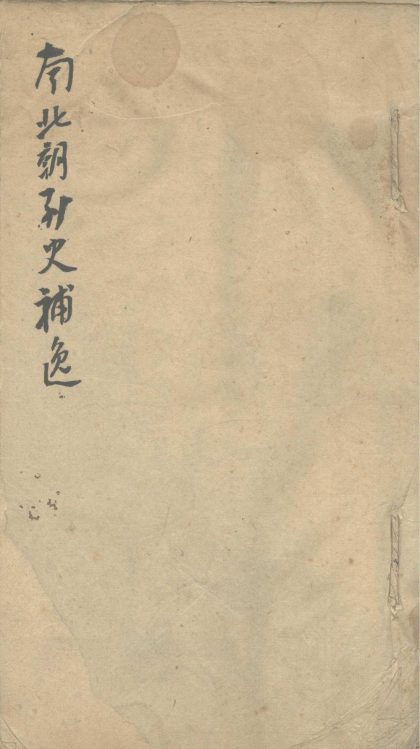 南北朝史補逸